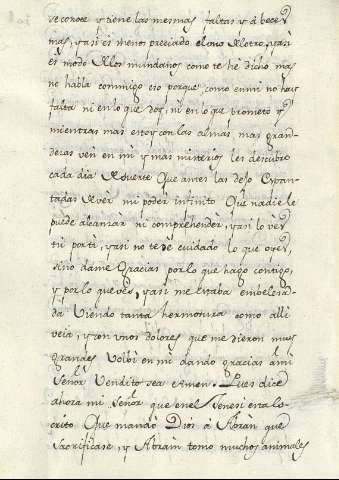 se conoce y tiene las mesmas faltas y á beces
mas, y asi es menos preciado el uno del otro, y asi
es modo de los mundanos como te hé dicho mas
no habla conmigo eso porque como en mi no hay
falta ni en lo que doy, ni en lo que prometo y
mientras mas estoy con las almas, mas gran-
deras ven en mi y mas misterios les descubro
cada dia de suerte que antes las dejo espan-
tadas de ver mi poder infinito que nadie le
puede alcansar ni comprehender, y asi lo ves
tu por ti, y asi no te dé cuidado lo que oyes,
sino dame Gracias por lo que hago contigo,
y por lo que ves, y asi me estaba embelesa-
da Viendo tanta hermosura como alli
veia, y con unos dolores que me dieron muy
grandes Volbi en mi dando gracias á mi
Señor Vendito sea Amen. Pues dice
ahora mi Señor que en el Genesi esta es-
crito Que mandó Dios a Abran que
sacrificase, y Abran tomo muchos animales